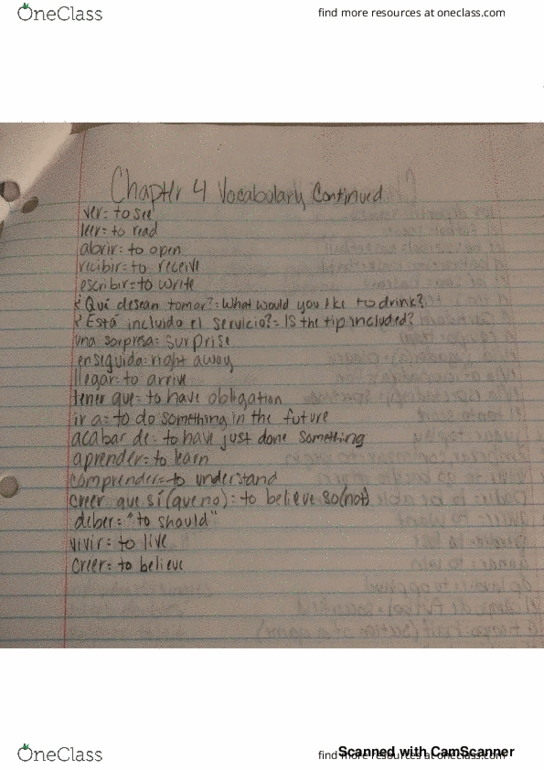 OneClass
find more resources at oneclass.com
Chapter 4 Vocabularly Continued
ver: to see
leer: to read
abrir: to open
recibir: to receive
escribir: to write
¿Qué desean tomar?: What would you like to drink?
¿Está incluido el servicio?: Is the tip included?
una sorpresa: surprise
enseguida: right away
llegar: to arrive
tener que: to have obligation
ir a: to do something in the future
acabar de: to have just done something
aprender: to learn
comprender: to understand
creer que sí (que no): to believe so(not)
deber: "to should"
vivir: to live
creer: to believe
OneClass
find more resources at oneclass.com
Scanned with CamScanner